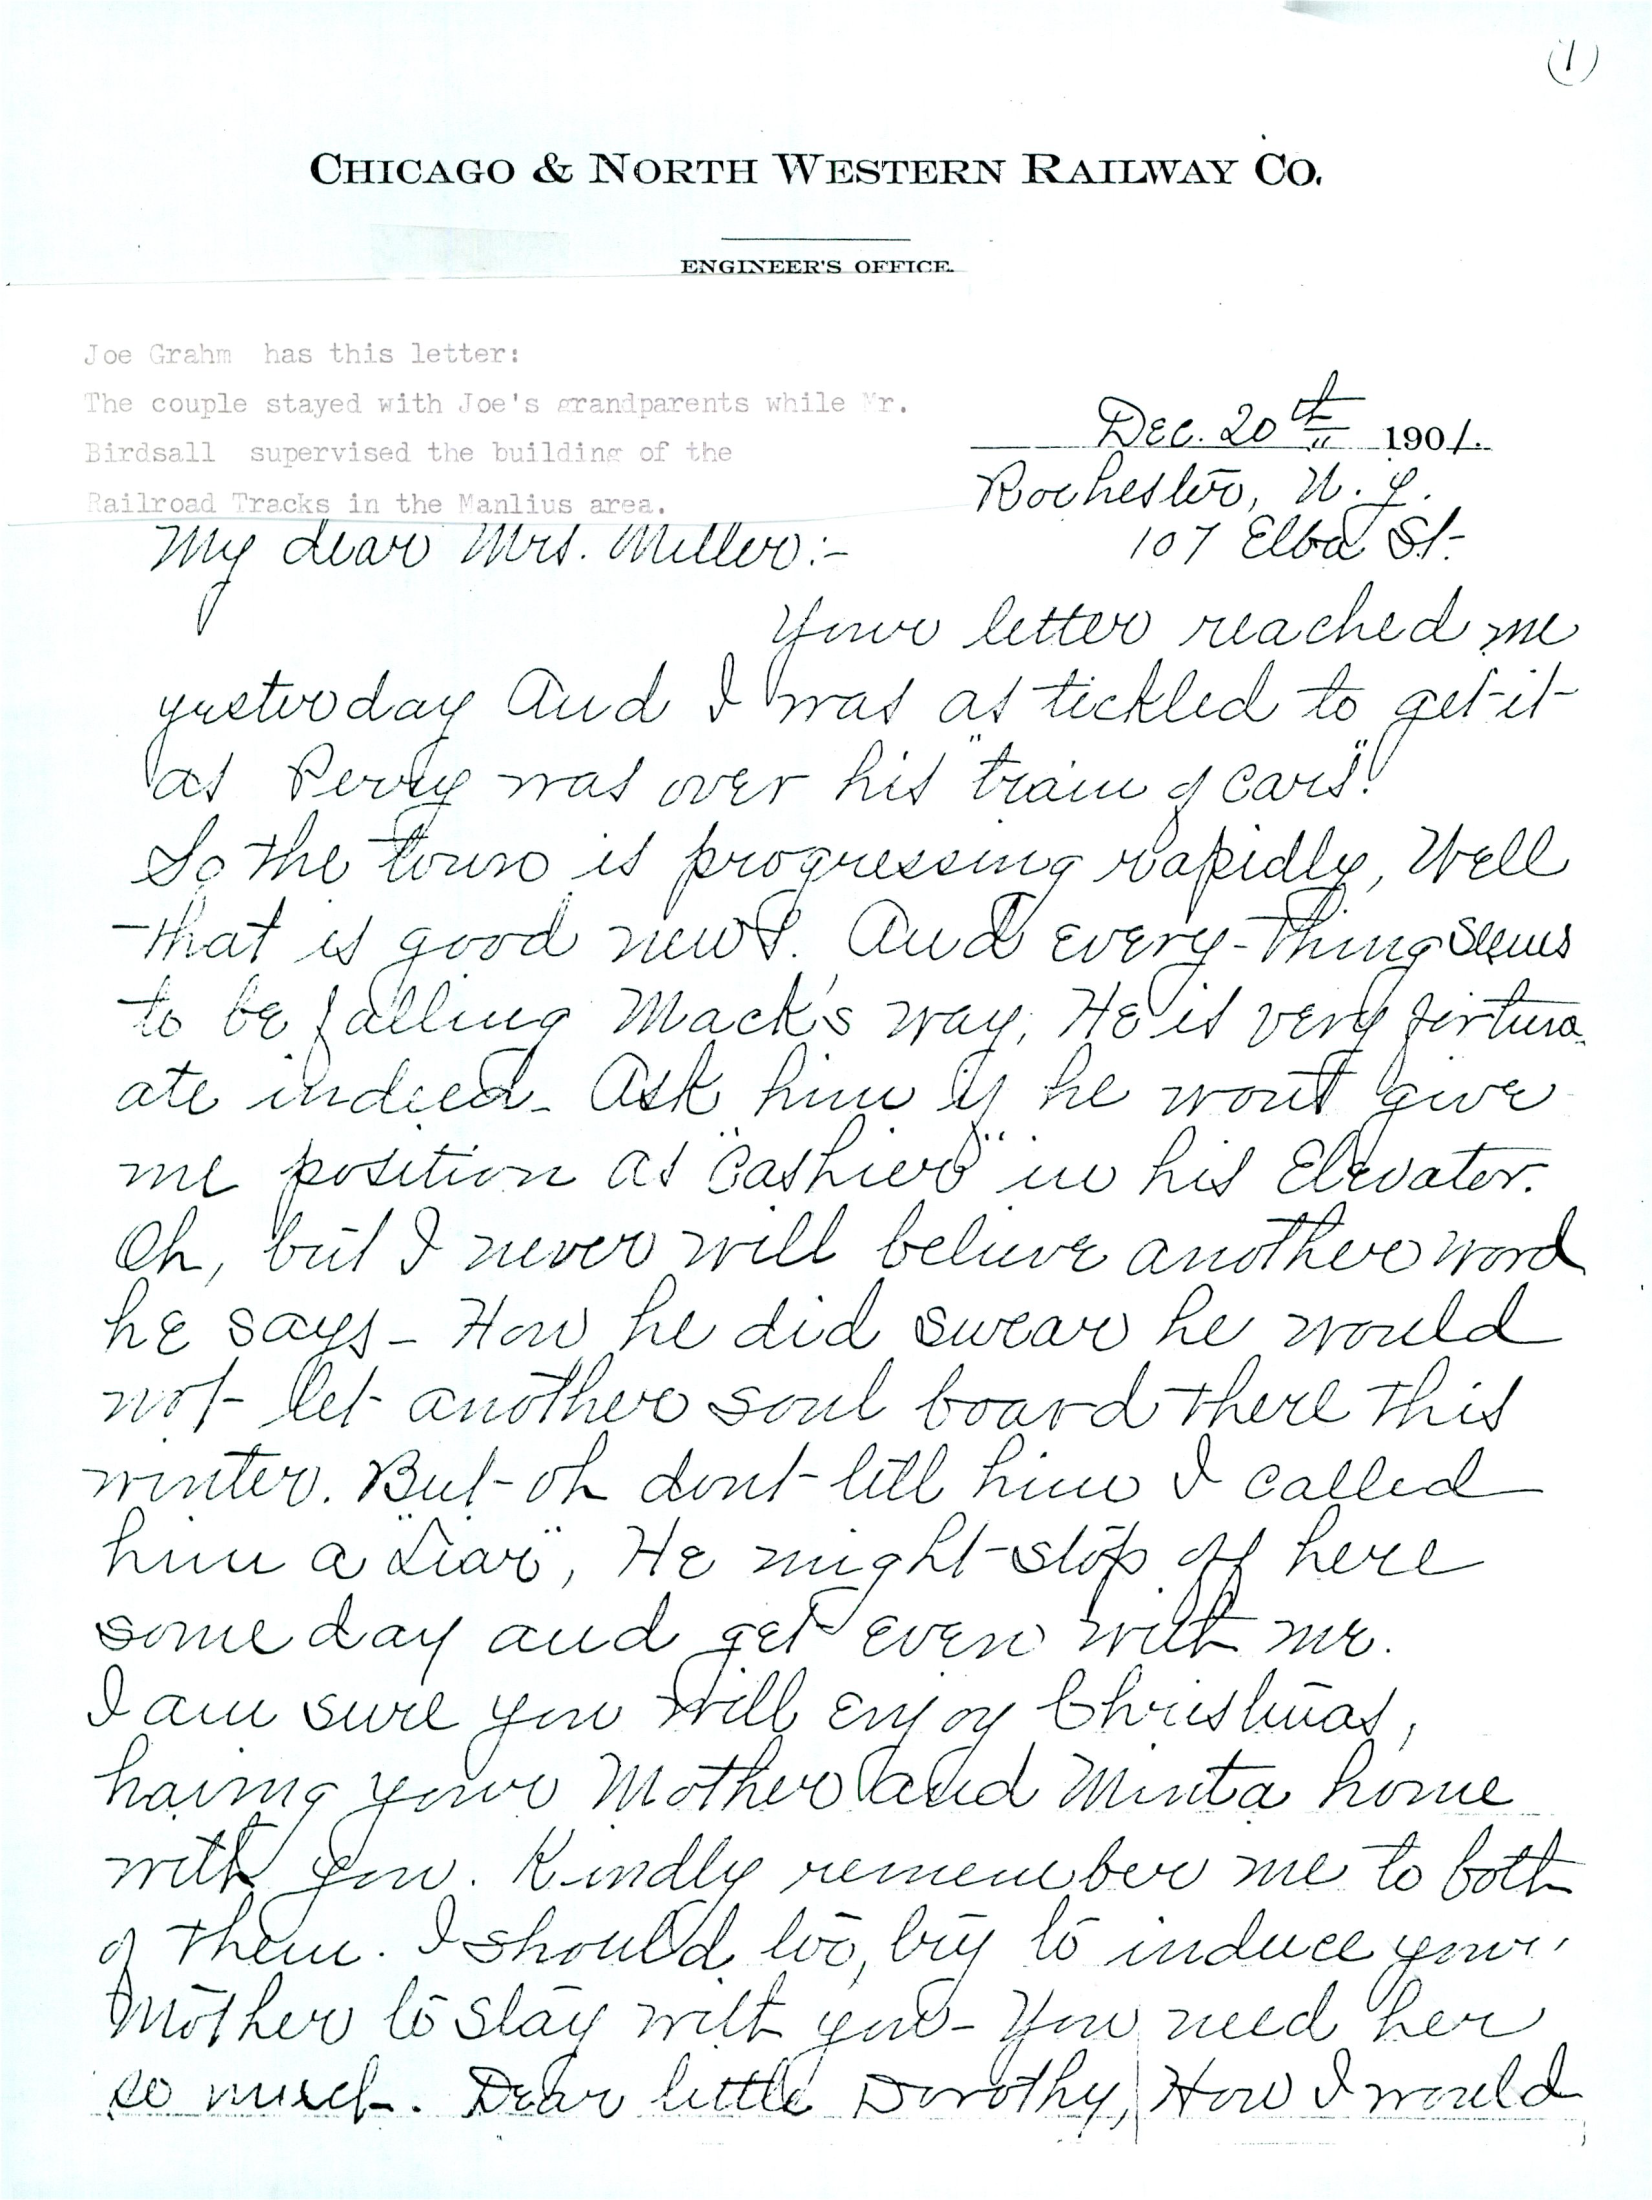 (1)
CHICAGO & NORTH WESTERN RAILWAY CO.
ENGINEER'S OFFICE.
Joe Grahm has this letter:
The couple stayed with Joe's grandparents while Mr.
Birdsall supervised the building of the
Railroad Tracks in the Manlius area.
Dec. 20th 1901.
Rochester, N. Y.
107 Elba St.
My dear Mrs. Miller:-
Your letter reached me
yesterday And I was as tickled to get it
as Perry was over his "train of cars"!
So the town is progressing rapidly, Well
that is good news. And every-thing seems
to be falling Mack's way, He is very fortun-
ate indeed. Ask him if he wont give
me position as "Cashier" in his Elevator.
Oh, but I never will believe another word
he says - How he did swear he would
not let another soul board there this
winter. But-oh dont tell him I called
him a "Liar", He might stop off here
some day and get even with me.
I am sure you will enjoy Christmas,
having your Mother and Minta home
with you. Kindly remember me to both
of them. I should too, try to induce your
Mother to stay with you - You need her
so much. Dear little Dorothy, How I would